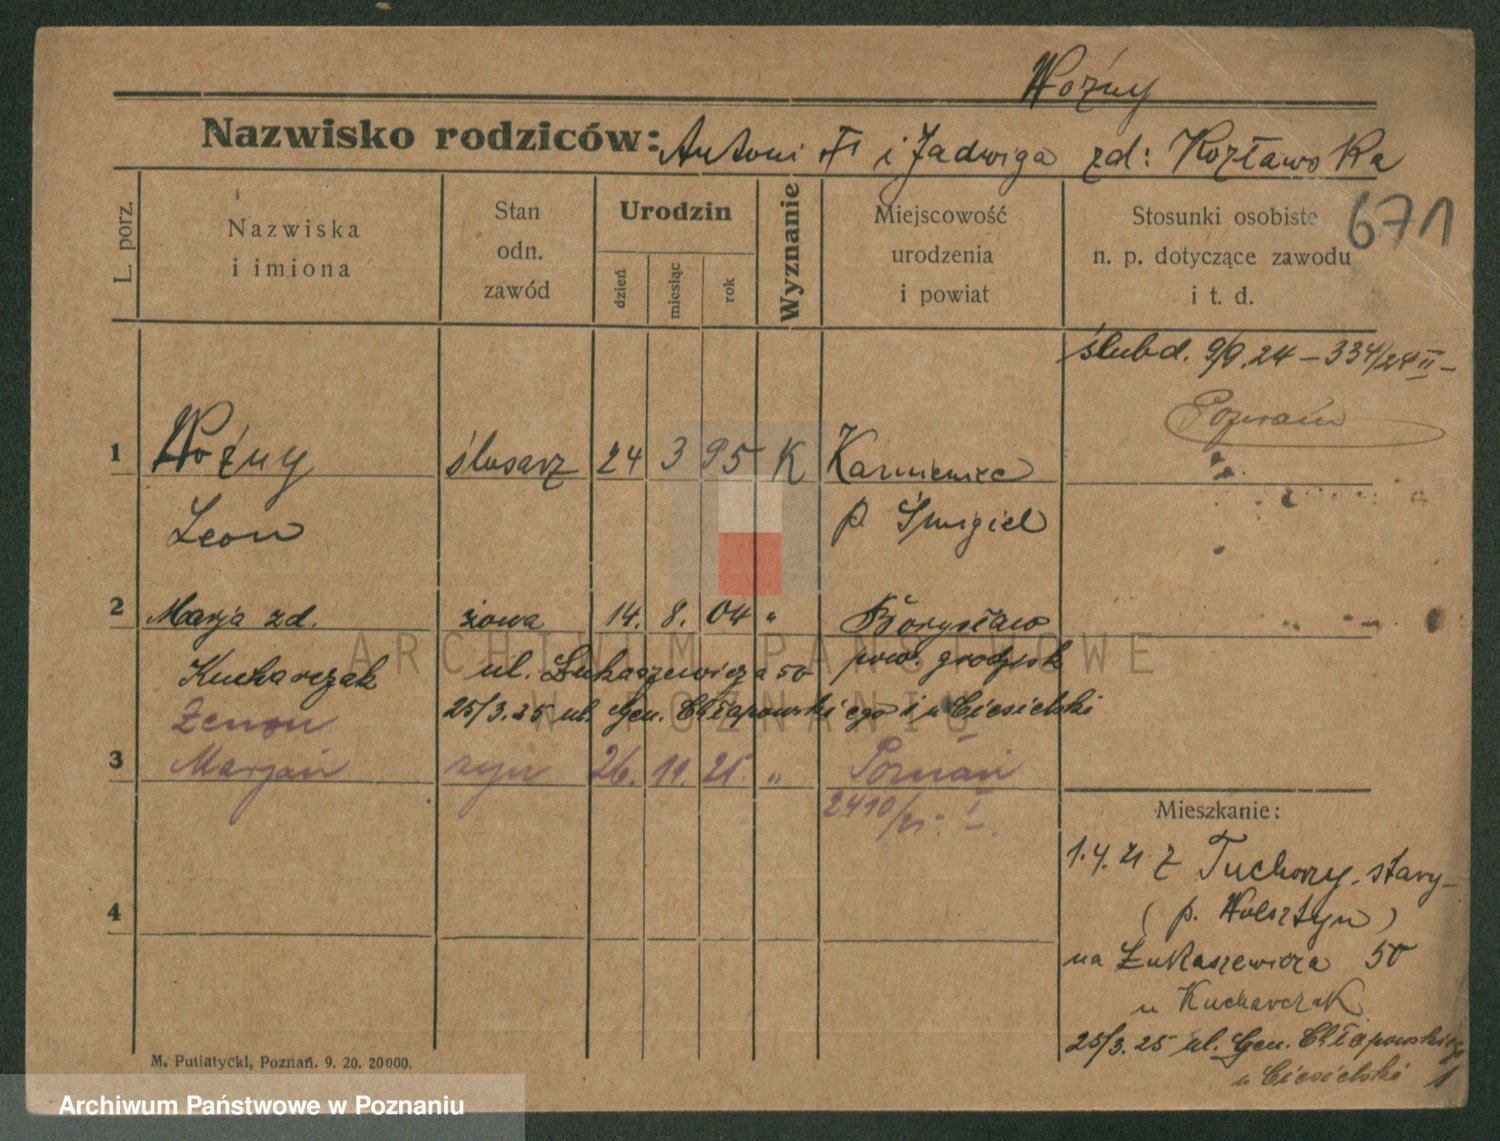 Woźny
Nazwisko rodziców: Antoni i Jadwiga zd: Kozławska
671
L. porz.
Nazwiska i imiona
Stan odn. zawód
Urodzin
dzień
miesiąc
rok
Wyznanie
Miejscowość urodzenia i powiat
Stosunki osobiste n. p. dotyczące zawodu i t. d.
ślub d. 9/9.24 – 334/24 II –
Poznań
1 Woźny ślusarz 24 3 95 K Karmieniec
Leon p. Śmigiel
2 Marja zd. żona 14. 8. 04 " Borysław
Kucharczak ul. Łukaszewicza 50 pow. grodzisk
Zenon 25/3.25 ul. Gen. Chłapowskiego 1 u Ciesielski
3 Marjan syn 26. 11. 25. " Poznań
2410/ I.
Mieszkanie:
1.4.21 z Tuchorzy. stary-
4
(p. Wolsztyn)
na Łukaszewicza 50
u Kucharczak
25/3.25 ul. Gen. Chłapowskiego 1
u Ciesielski
M. Putiatycki, Poznań. 9. 20. 20000.
ARCHIWUM PAŃSTWOWE
W POZNANIU
Archiwum Państwowe w Poznaniu